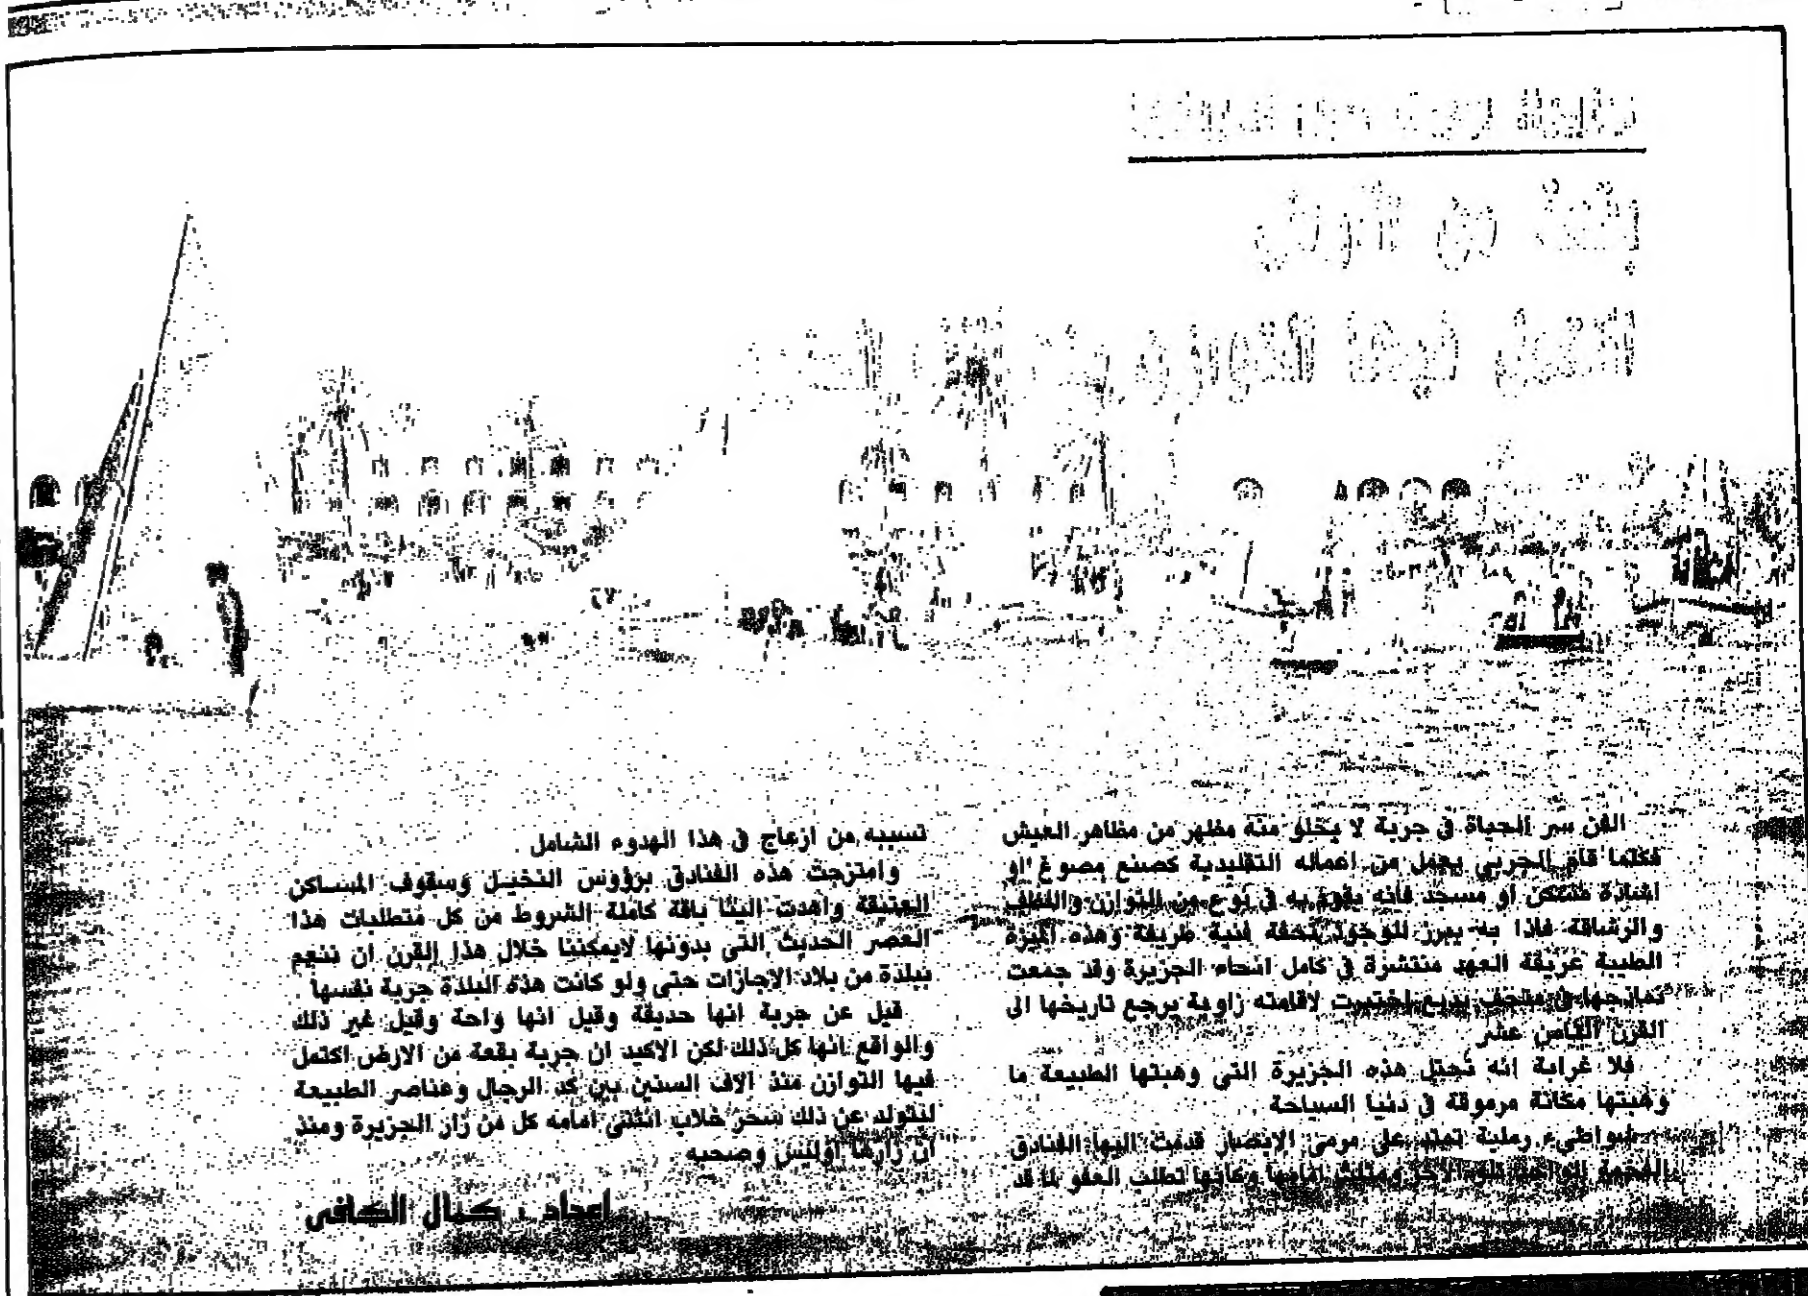 بقعة من الارض
اكتمل فيها التوازن
الفن سر الحياة في جربة لا يخلو منه مظهر من مظاهر العيش
فكلما قام الجربي بعمل من اعماله التقليدية كصنع مصوغ او
اشادة او مسجد فانه يقوم به في نوع من التوازن واللطف
والرشاقة فاذا به يبرز للوجود تحفة فنية طريفة وهذه الميزة
الطيبة عريقة العهد منتشرة في كامل انحاء الجزيرة وقد جمعت
نماذجها في متحف بديع اختيرت لاقامته زاوية يرجع تاريخها الى
القرن عشر
فلا غرابة انه تحتل هذه الجزيرة التي وهبتها الطبيعة ما
وهبتها مكانة مرموقة في دنيا السياحة .
شواطىء رملية تمتد على مرمى الابصار قدمت اليها الفنادق
الفخمة الواحد تلو الاخر امامها وكانها تطلب العفو لما قد
تسببه من ازعاج في هذا الهدوء الشامل .
وامتزجت هذه الفنادق برؤوس النخيل وسقوف المساكن
العتيقة واهدت الينا باقة كاملة الشروط من كل متطلبات هذا
العصر الحديث التي بدونها لايمكننا خلال هذا القرن ان ننعم
ببلدة من بلاد الاجازات حتى ولو كانت هذه البلدة جربة نفسها .
قيل عن جربة انها حديقة وقيل انها واحة وقيل غير ذلك
والواقع انها كل ذلك لكن الاكيد ان جربة بقعة من الارض اكتمل
فيها التوازن منذ الاف السنين بين كد الرجال وعناصر الطبيعة
ليتولد عن ذلك سحر خلاب انثنى امامه كل من زار الجزيرة ومنذ
ان زارها اوليس وصحبه .
اعداد : كمال الكافي